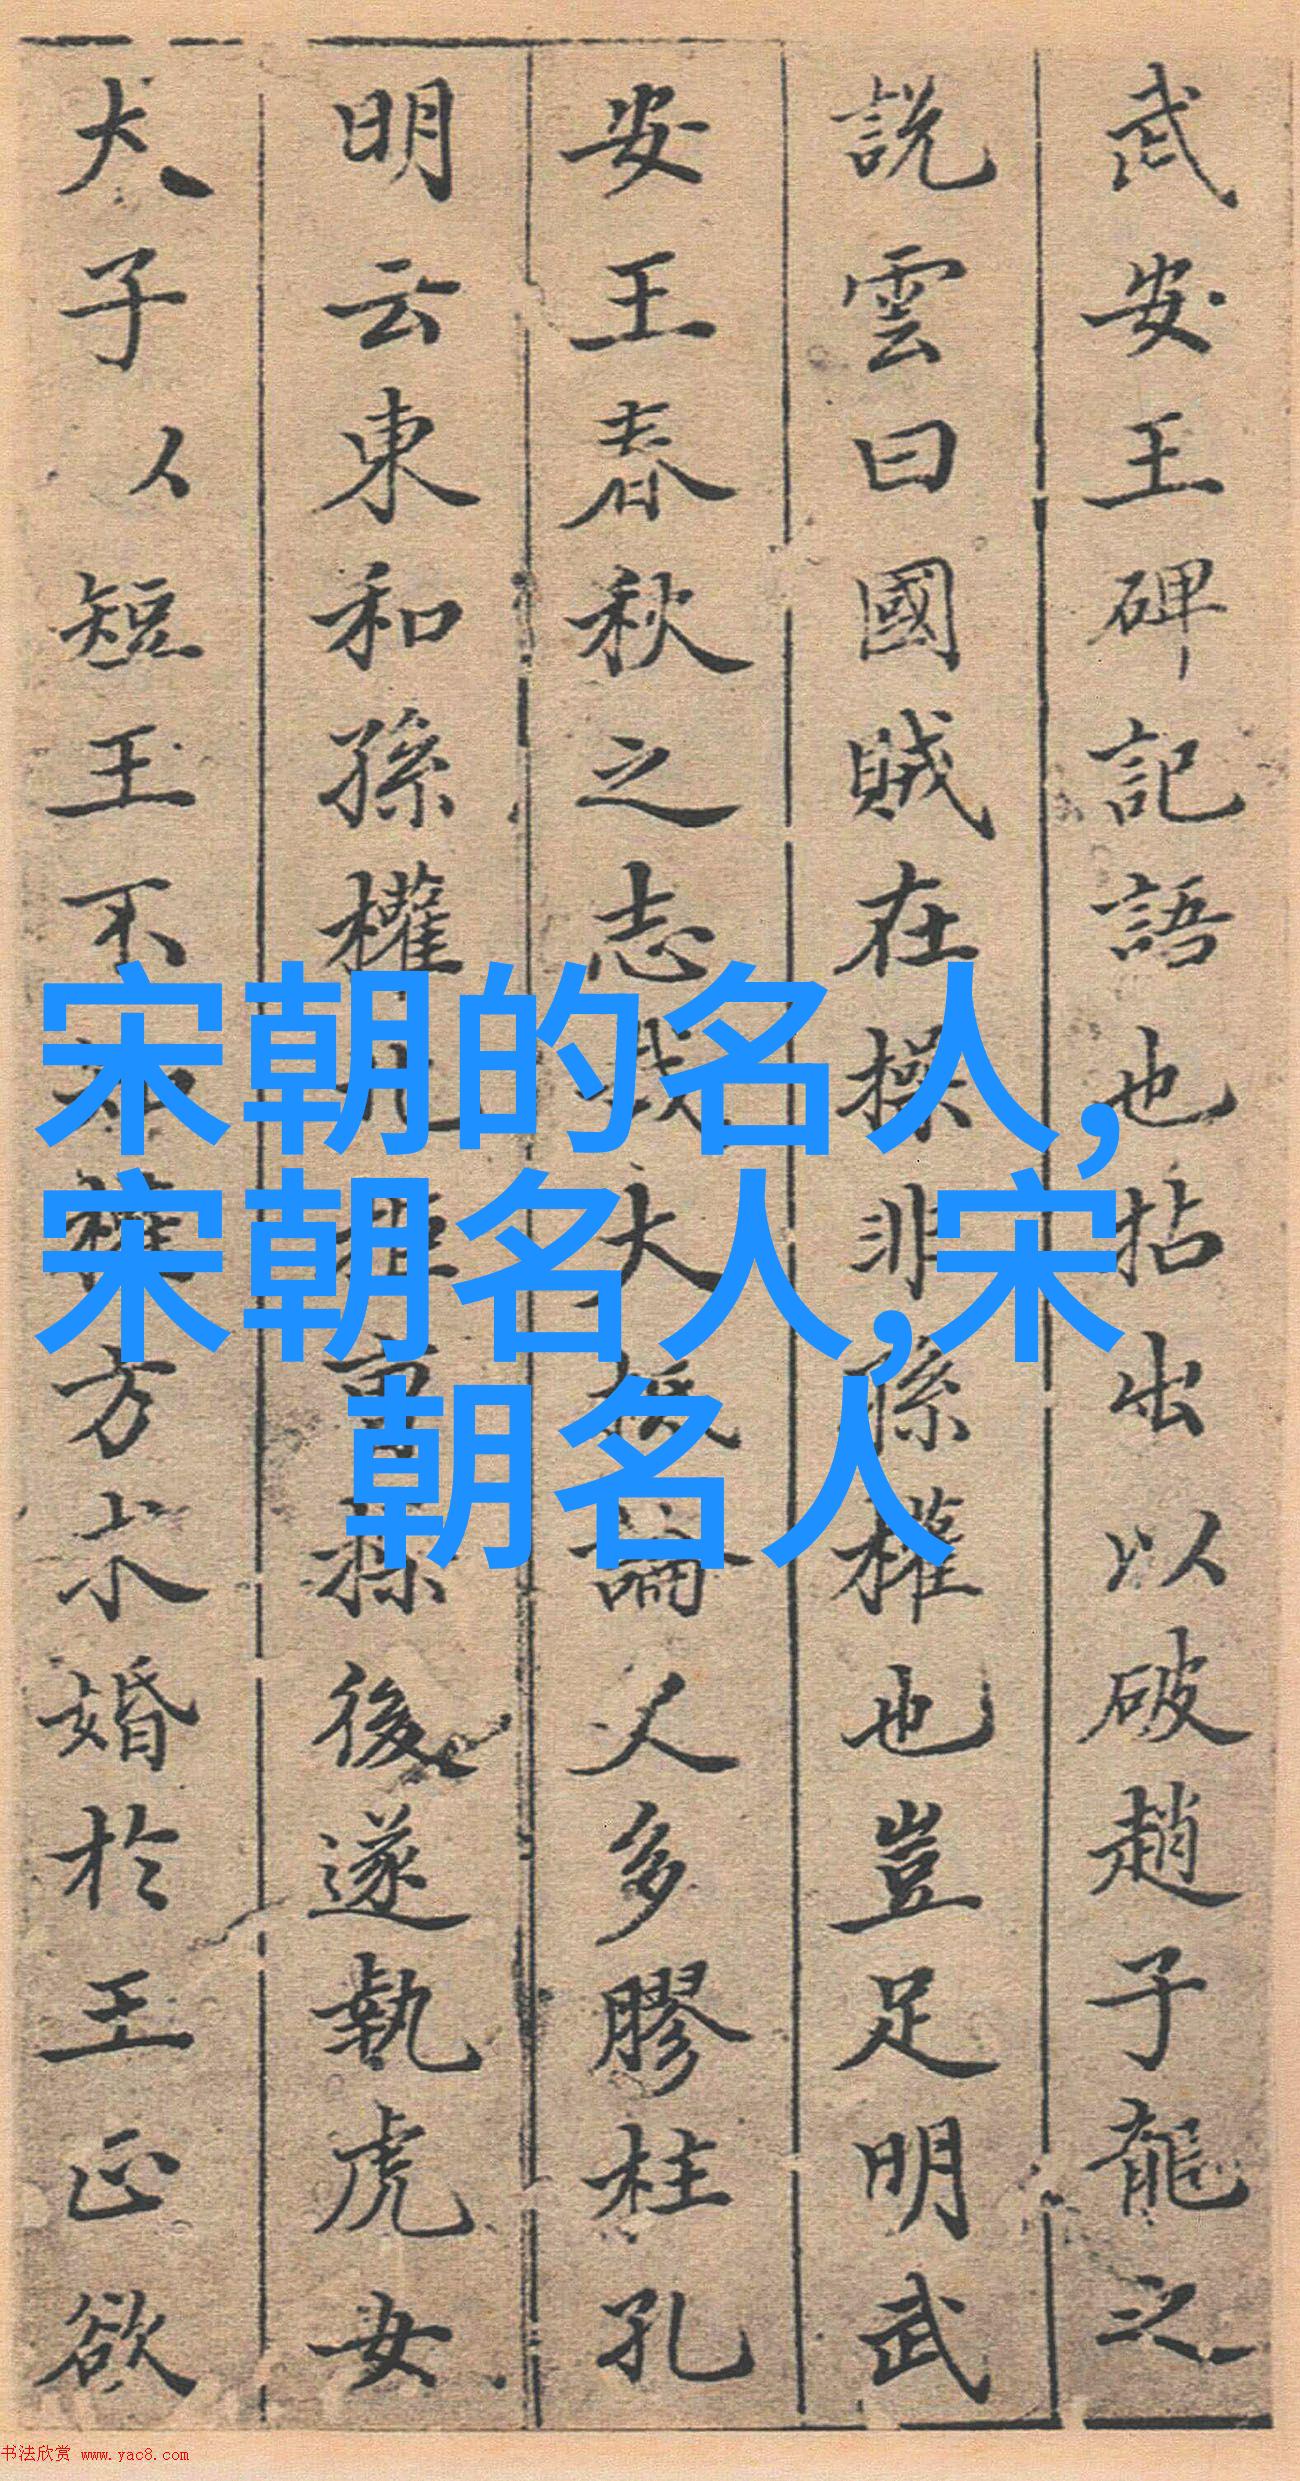 武安王碑記語也拈出以破趙子龍之
說雲曰國賊在操非孫權也豈足明武
安王春秋之志哉大抵論人多膠柱孔
明云東和孫權北拒曹操後遂執虎女
犬子人短王不知權方求婚於王正欲
宋朝的名人,
宋朝名人,宋
朝名人
书法欣赏 www.yac8.com